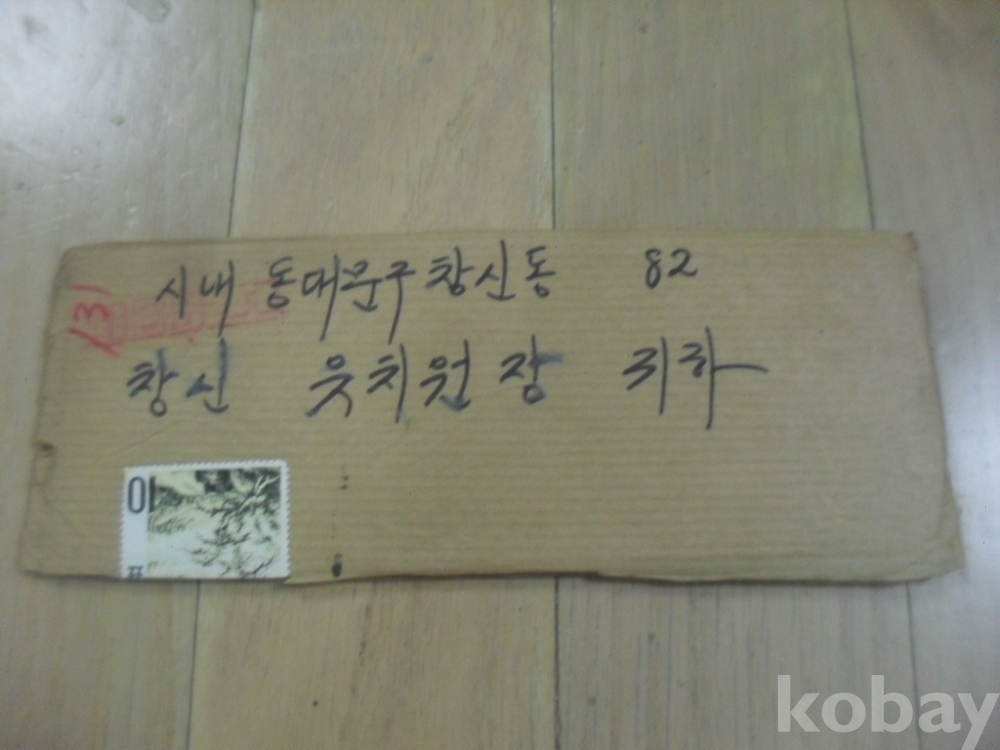 시내 동대문구 창신동 82
창신 유치원장 귀하
10
kobay